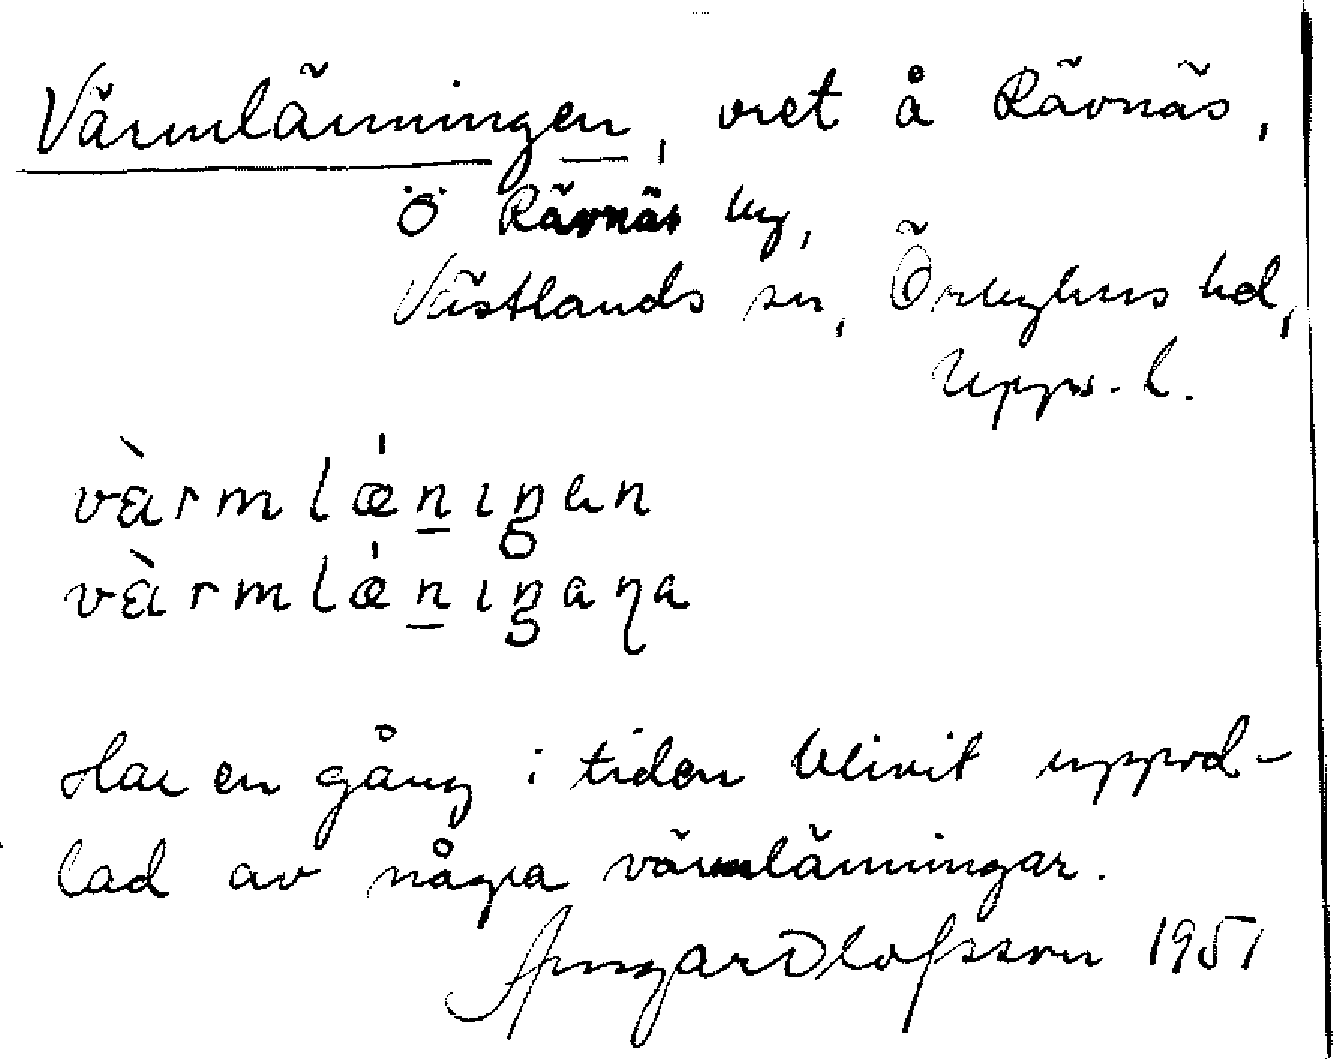 Värmlänningen, vret å Rävnäs,
Ö Rävnäs by,
Västlands sn, Örbyhus hd,
Upps. l.
vàrmlǽnıŋan
vàrmlǽnıŋaɳa
Har en gång i tiden blivit uppod-
lad av några värmlänningar.
Olofsson 1951